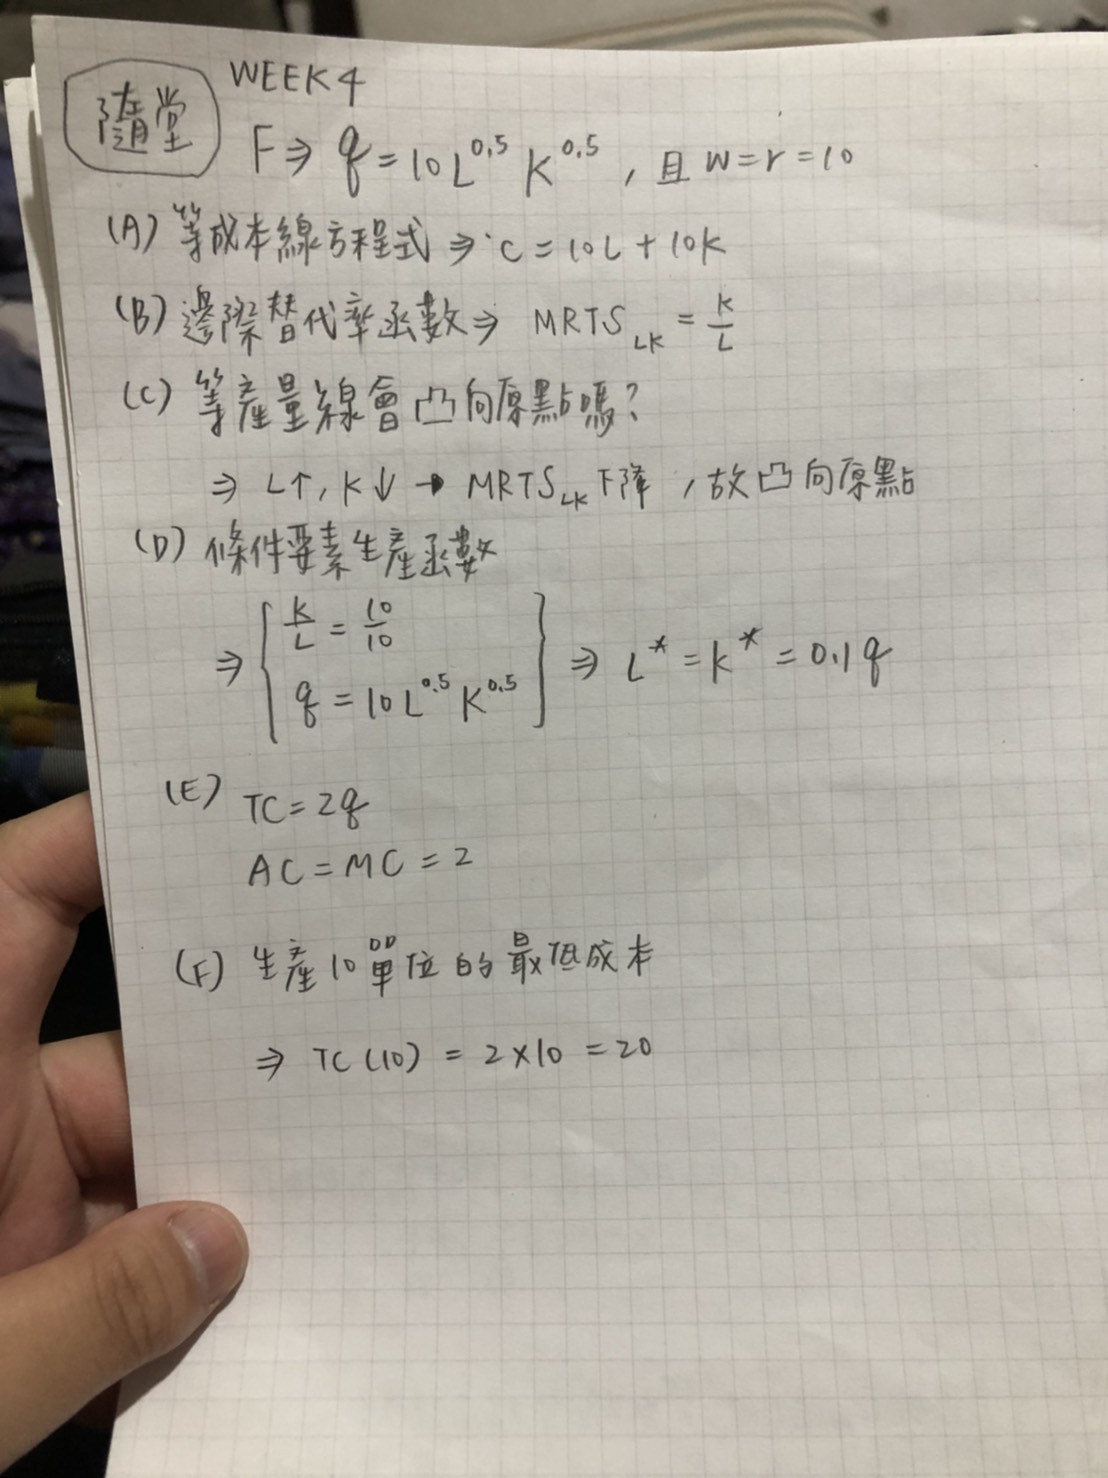 隨堂 WEEK4
F⇒ q = 10L^0.5 K^0.5 , 且 w=r=10
(A) 等成本線方程式 ⇒ C = 10L + 10K
(B) 邊際替代率函數⇒ MRTS_LK = K/L
(C) 等產量線會凸向原點嗎?
⇒ L↑, K↓ → MRTS_LK 下降 , 故凸向原點
(D) 條件要素生產函數
⇒ { K/L = 10/10
q = 10L^0.5 K^0.5 } ⇒ L* = K* = 0.1q
(E) TC = 2q
AC = MC = 2
(F) 生產10單位的最低成本
⇒ TC(10) = 2×10 = 20